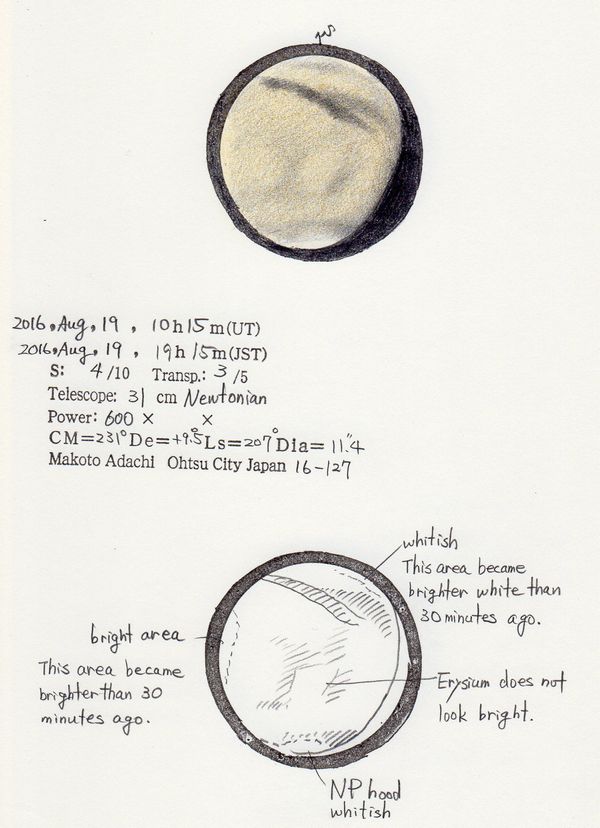 2016, Aug, 19, 10h 15m (UT)
2016, Aug, 19, 19h 15m (JST)
S: 4/10 Transp.: 3/5
Telescope: 31 cm Newtonian
Power: 600 × ×
CM=231° De=+9.5° Ls=207° Dia= 11".4
Makoto Adachi Ohtsu City Japan 16-127
whitish
This area became
brighter white than
30 minutes ago.
bright area
This area became
brighter than 30
minutes ago.
Erysium does not
look bright.
NP hood
whitish